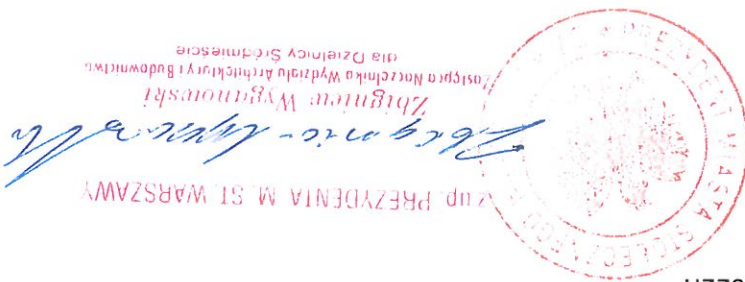 z up. PREZYDENTA M. ST. WARSZAWY
Zbigniew Wyganowski
Zastępca Naczelnika Wydziału Architektury i Budownictwa
dla Dzielnicy Śródmieście
PREZYDENT MIASTA STOŁECZNEGO